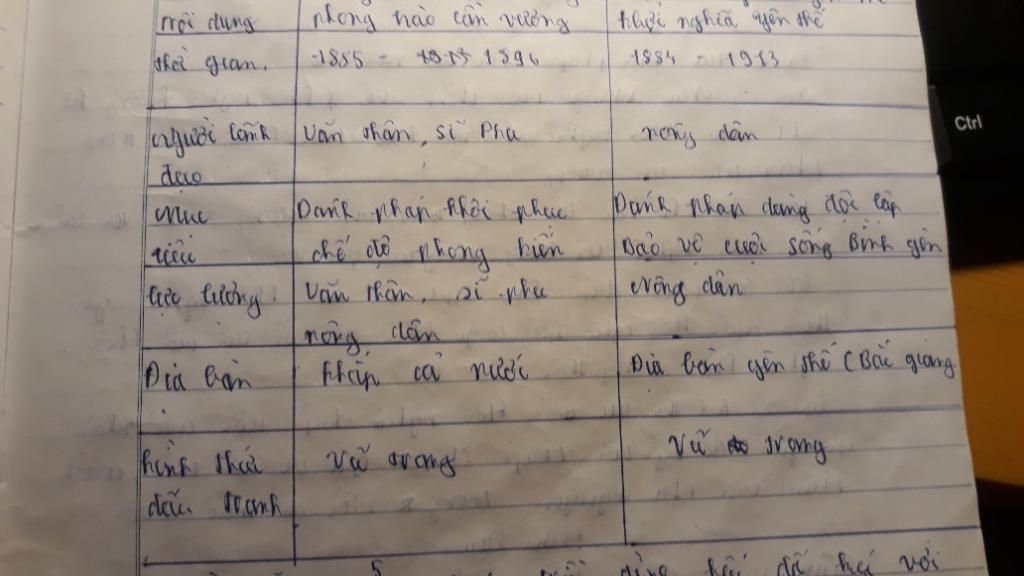 nội dung phong trào cần vương khởi nghĩa yên thế
thời gian. 1885 - 1896 1884 - 1913
người lãnh văn thân, sĩ phu nông dân
đạo
mục Đánh pháp khôi phục Đánh pháp dành độc lập
tiêu chế độ phong kiến Bảo vệ cuộc sống Bình yên
lực lượng văn thân, sĩ phu nông dân
nông dân
Địa bàn khắp cả nước Địa bàn yên thế (Bắc giang
hình thức Vũ trang Vũ trang
đấu tranh
với
Ctrl